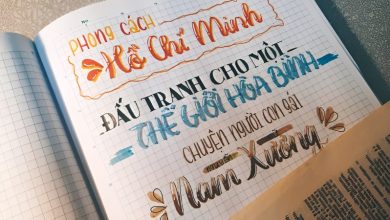 PHONG CÁCH
Hồ Chí Minh
ĐẤU TRANH CHO MỘT
THẾ GIỚI HÒA BÌNH
CHUYỆN NGƯỜI CON GÁI
Nam Xương